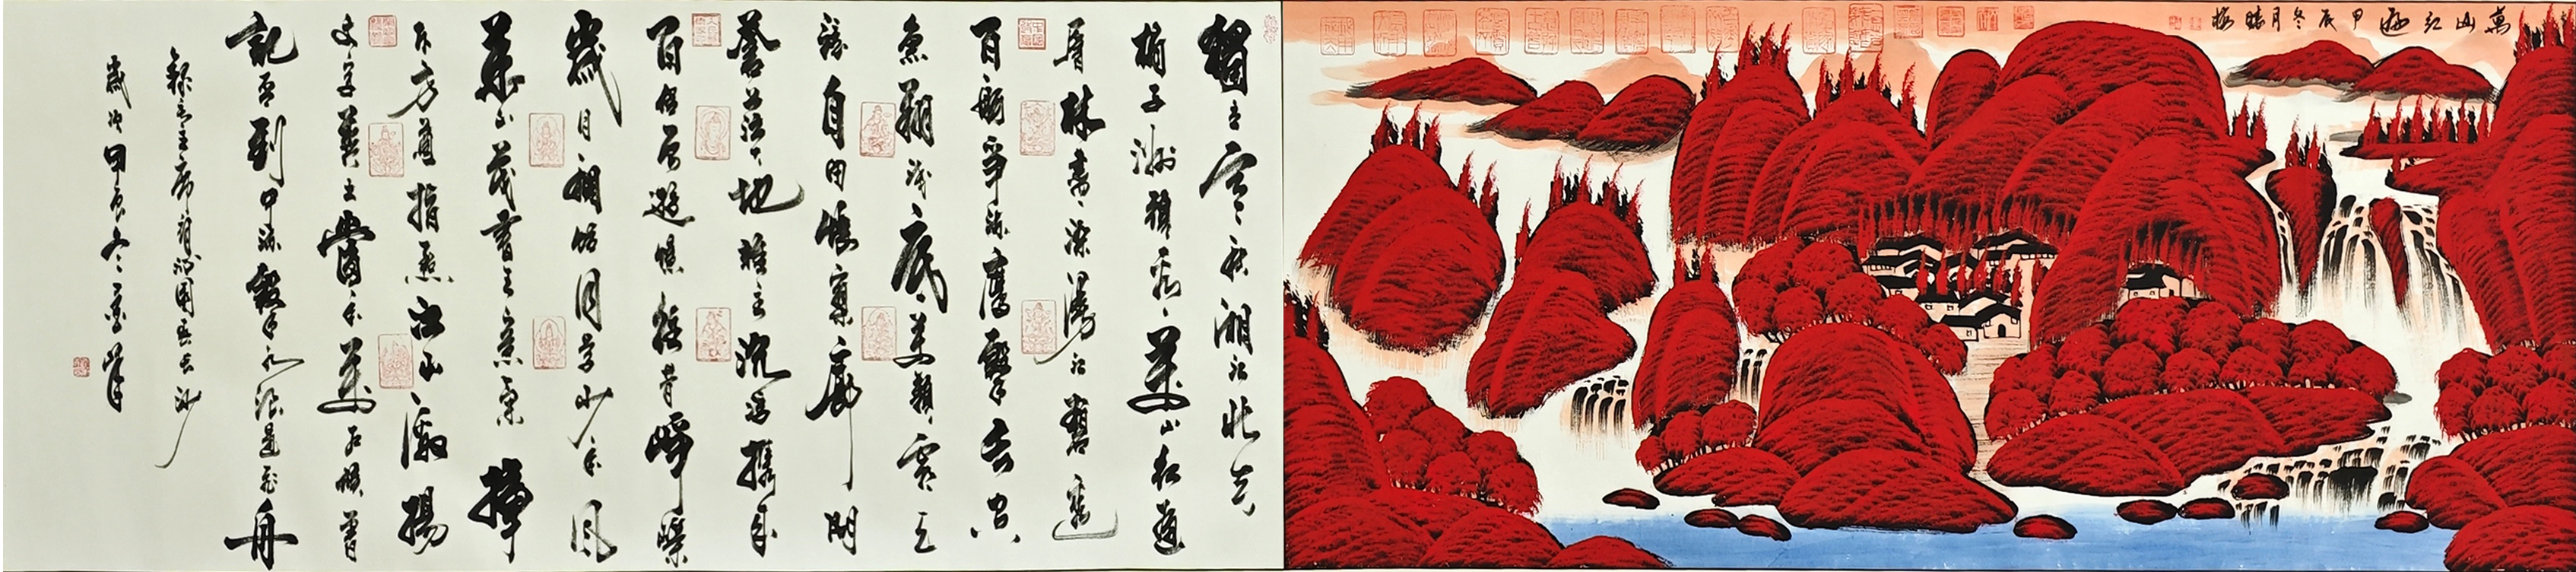 萬山紅遍 甲辰冬月
獨立寒秋湘江北去
橘子洲頭看萬山紅遍
層林盡染漫江碧透
百舸爭流鷹擊長空
魚翔淺底萬類霜天
競自由悵寥廓問
蒼茫大地誰主沉浮攜來
百侶曾遊憶往昔崢嶸
歲月稠恰同學少年風
華正茂書生意氣揮
斥方遒指點江山激揚
文字糞土當年萬戶侯曾
記否到中流擊水浪遏飛舟
錄毛主席詞沁園春長沙
歲次甲辰冬